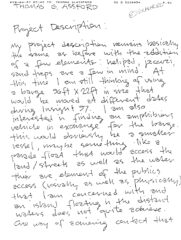 THOMAS D. ASHFORD
Project Description:
My project description remains basically
the same as before with the addition
of a few elements: helipad, jacuzzi,
sand traps are a few in mind. At
this time I am still thinking of using
a barge 95ft x 22ft in size that
would be moored at different sites
during . I am also
interested in finding an amphibious
vehicle in exchange for the barge,
this would obviously be a smaller
vessel, maybe something like a
parade float that would access the
land/streets as well as the water.
There are element of the publics
access (visually as well as physically)
that I am concerned with and
an island floating in the distant
waters does not quite
One way of securing contact that